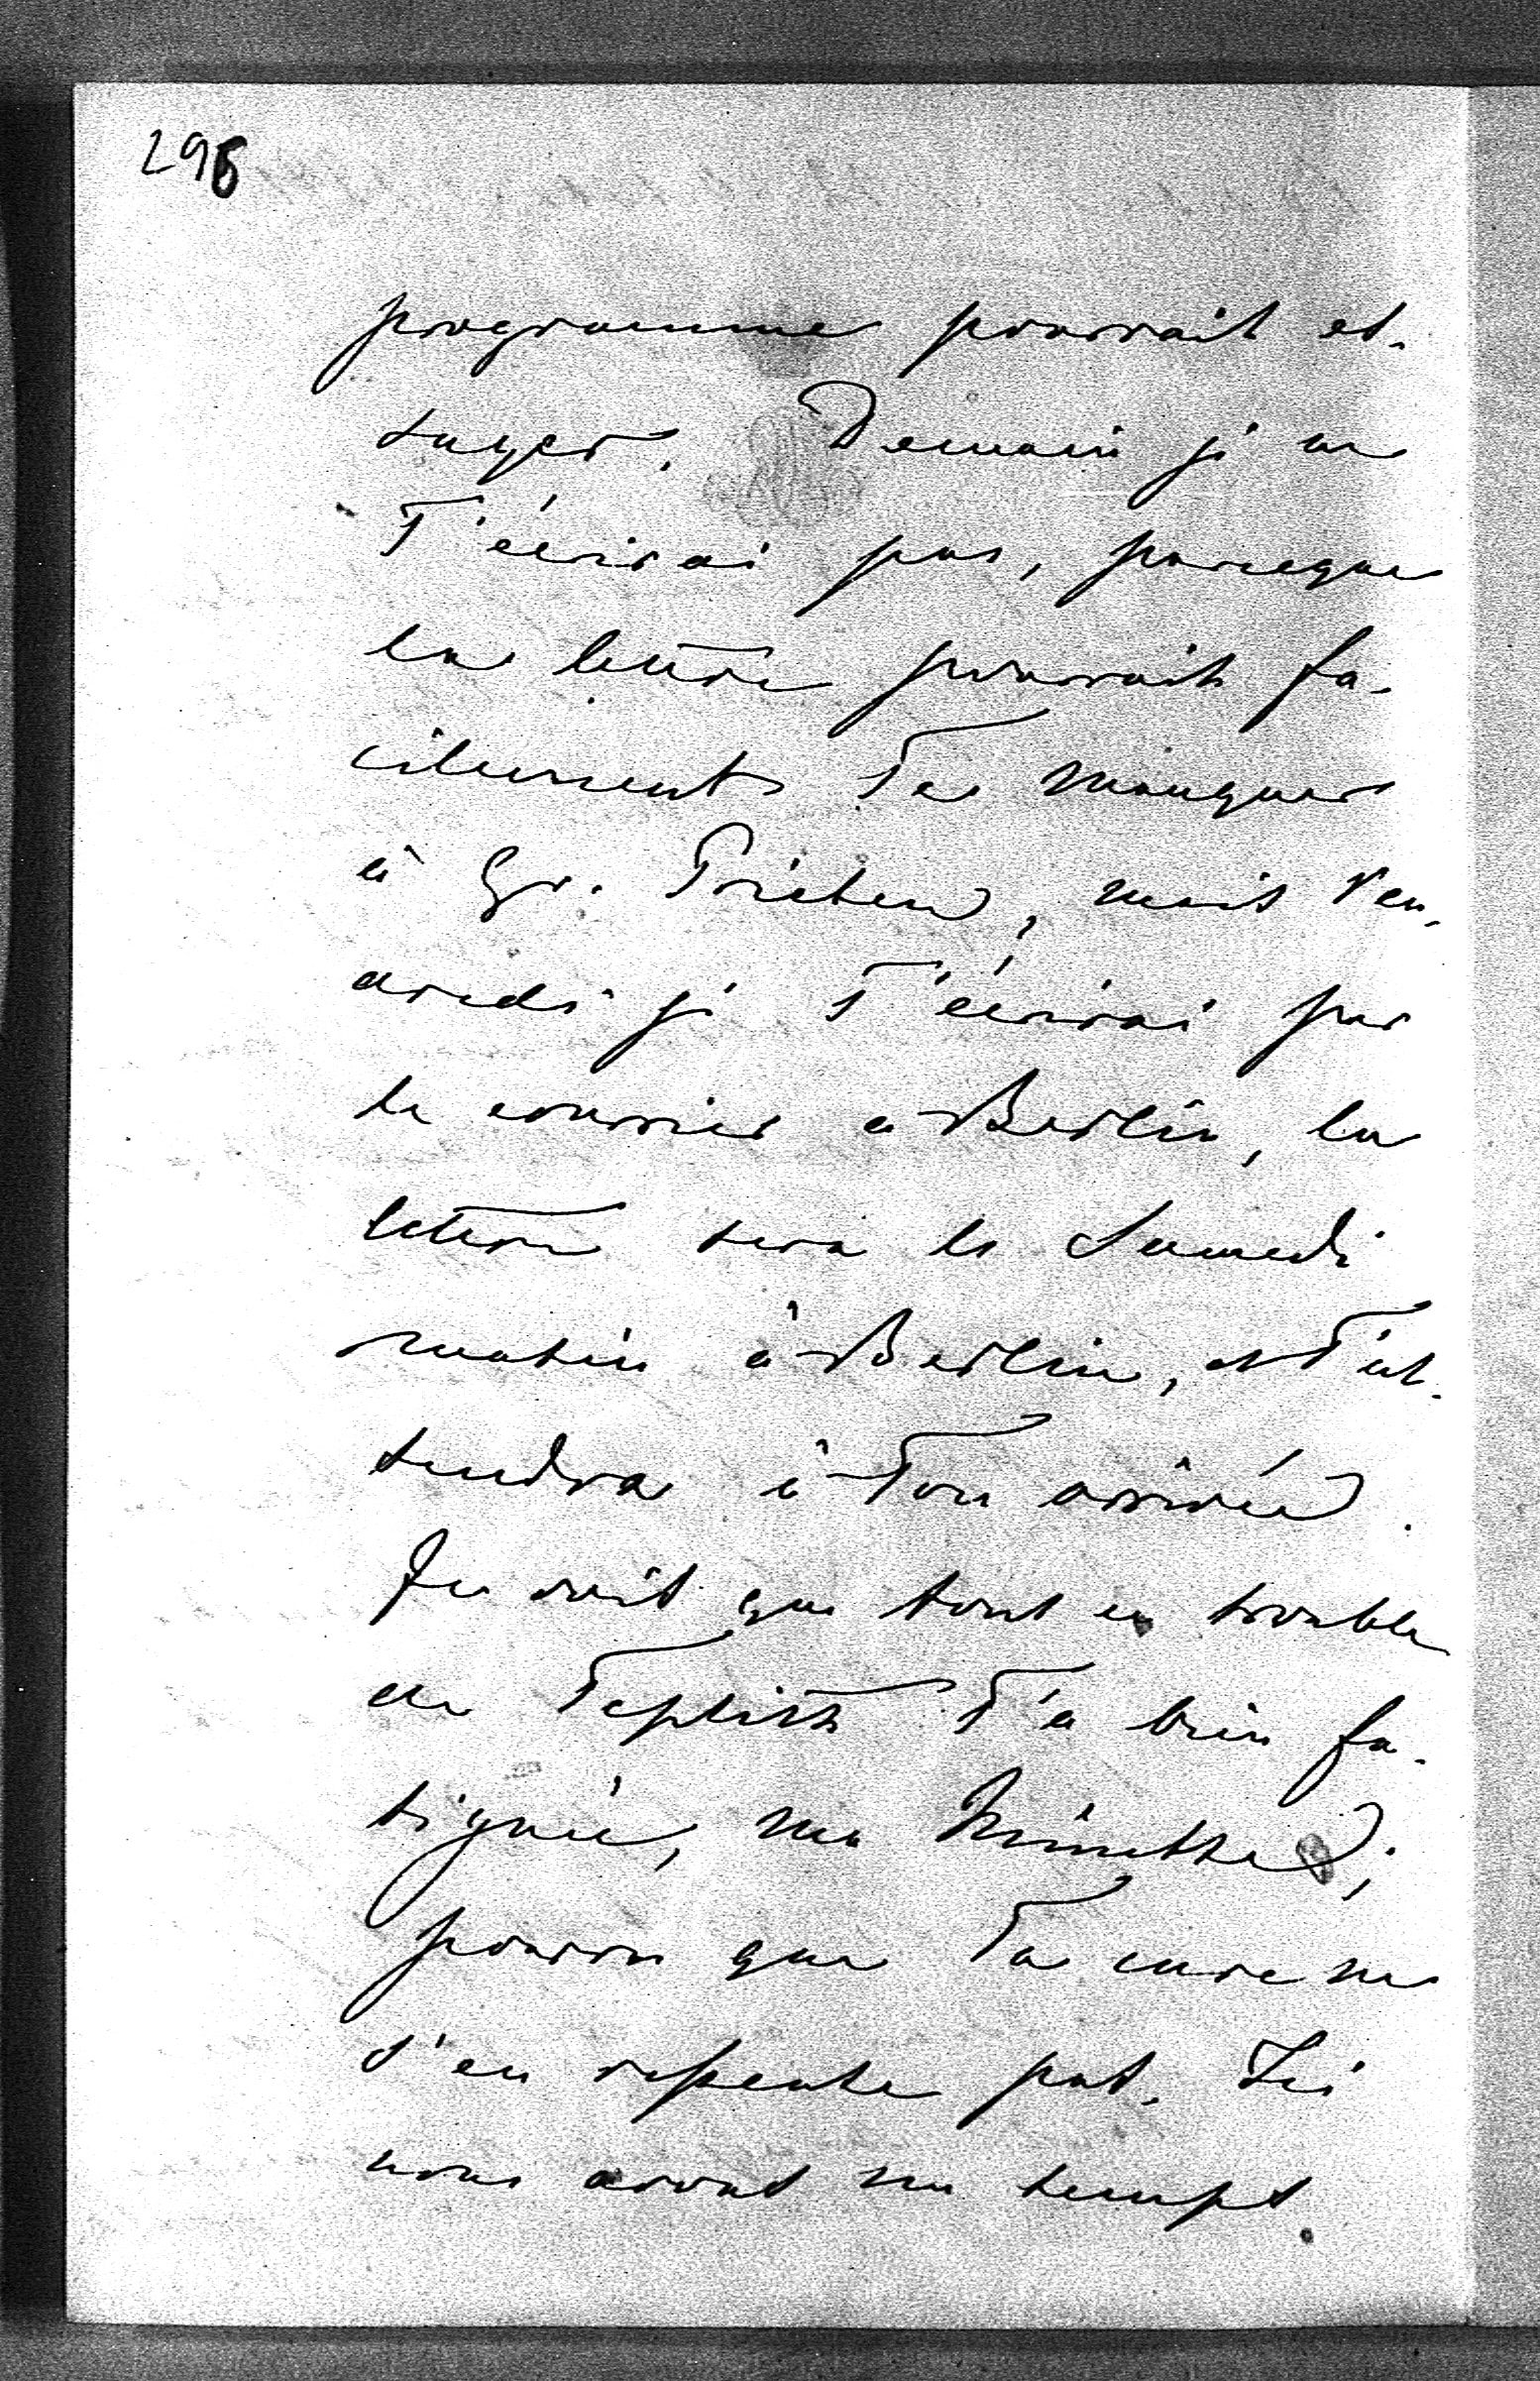 296
programme pourrait es-
suyer. Demain je ne
T'écrirai pas, parceque
la lettre pourrait fa-
cilement Te manquer
à Gr. Priesen, mais Ven-
dredi je T'écrirai par
le courrier à Berlin, la
lettre sera le Samedi
matin à Berlin, et T'at-
tendra à Ton arrivée.
Je vois que tout ce trouble
en Teplitz T'a bien fa-
tiguée, ma Minette;
pourvu que Ta cure ne
s'en repente pas. Ici
nous avons un temps